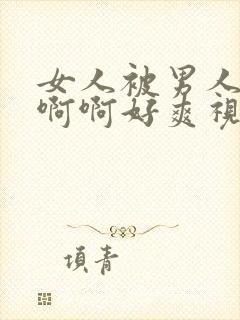 女人被男人
啊啊好爽視
項青